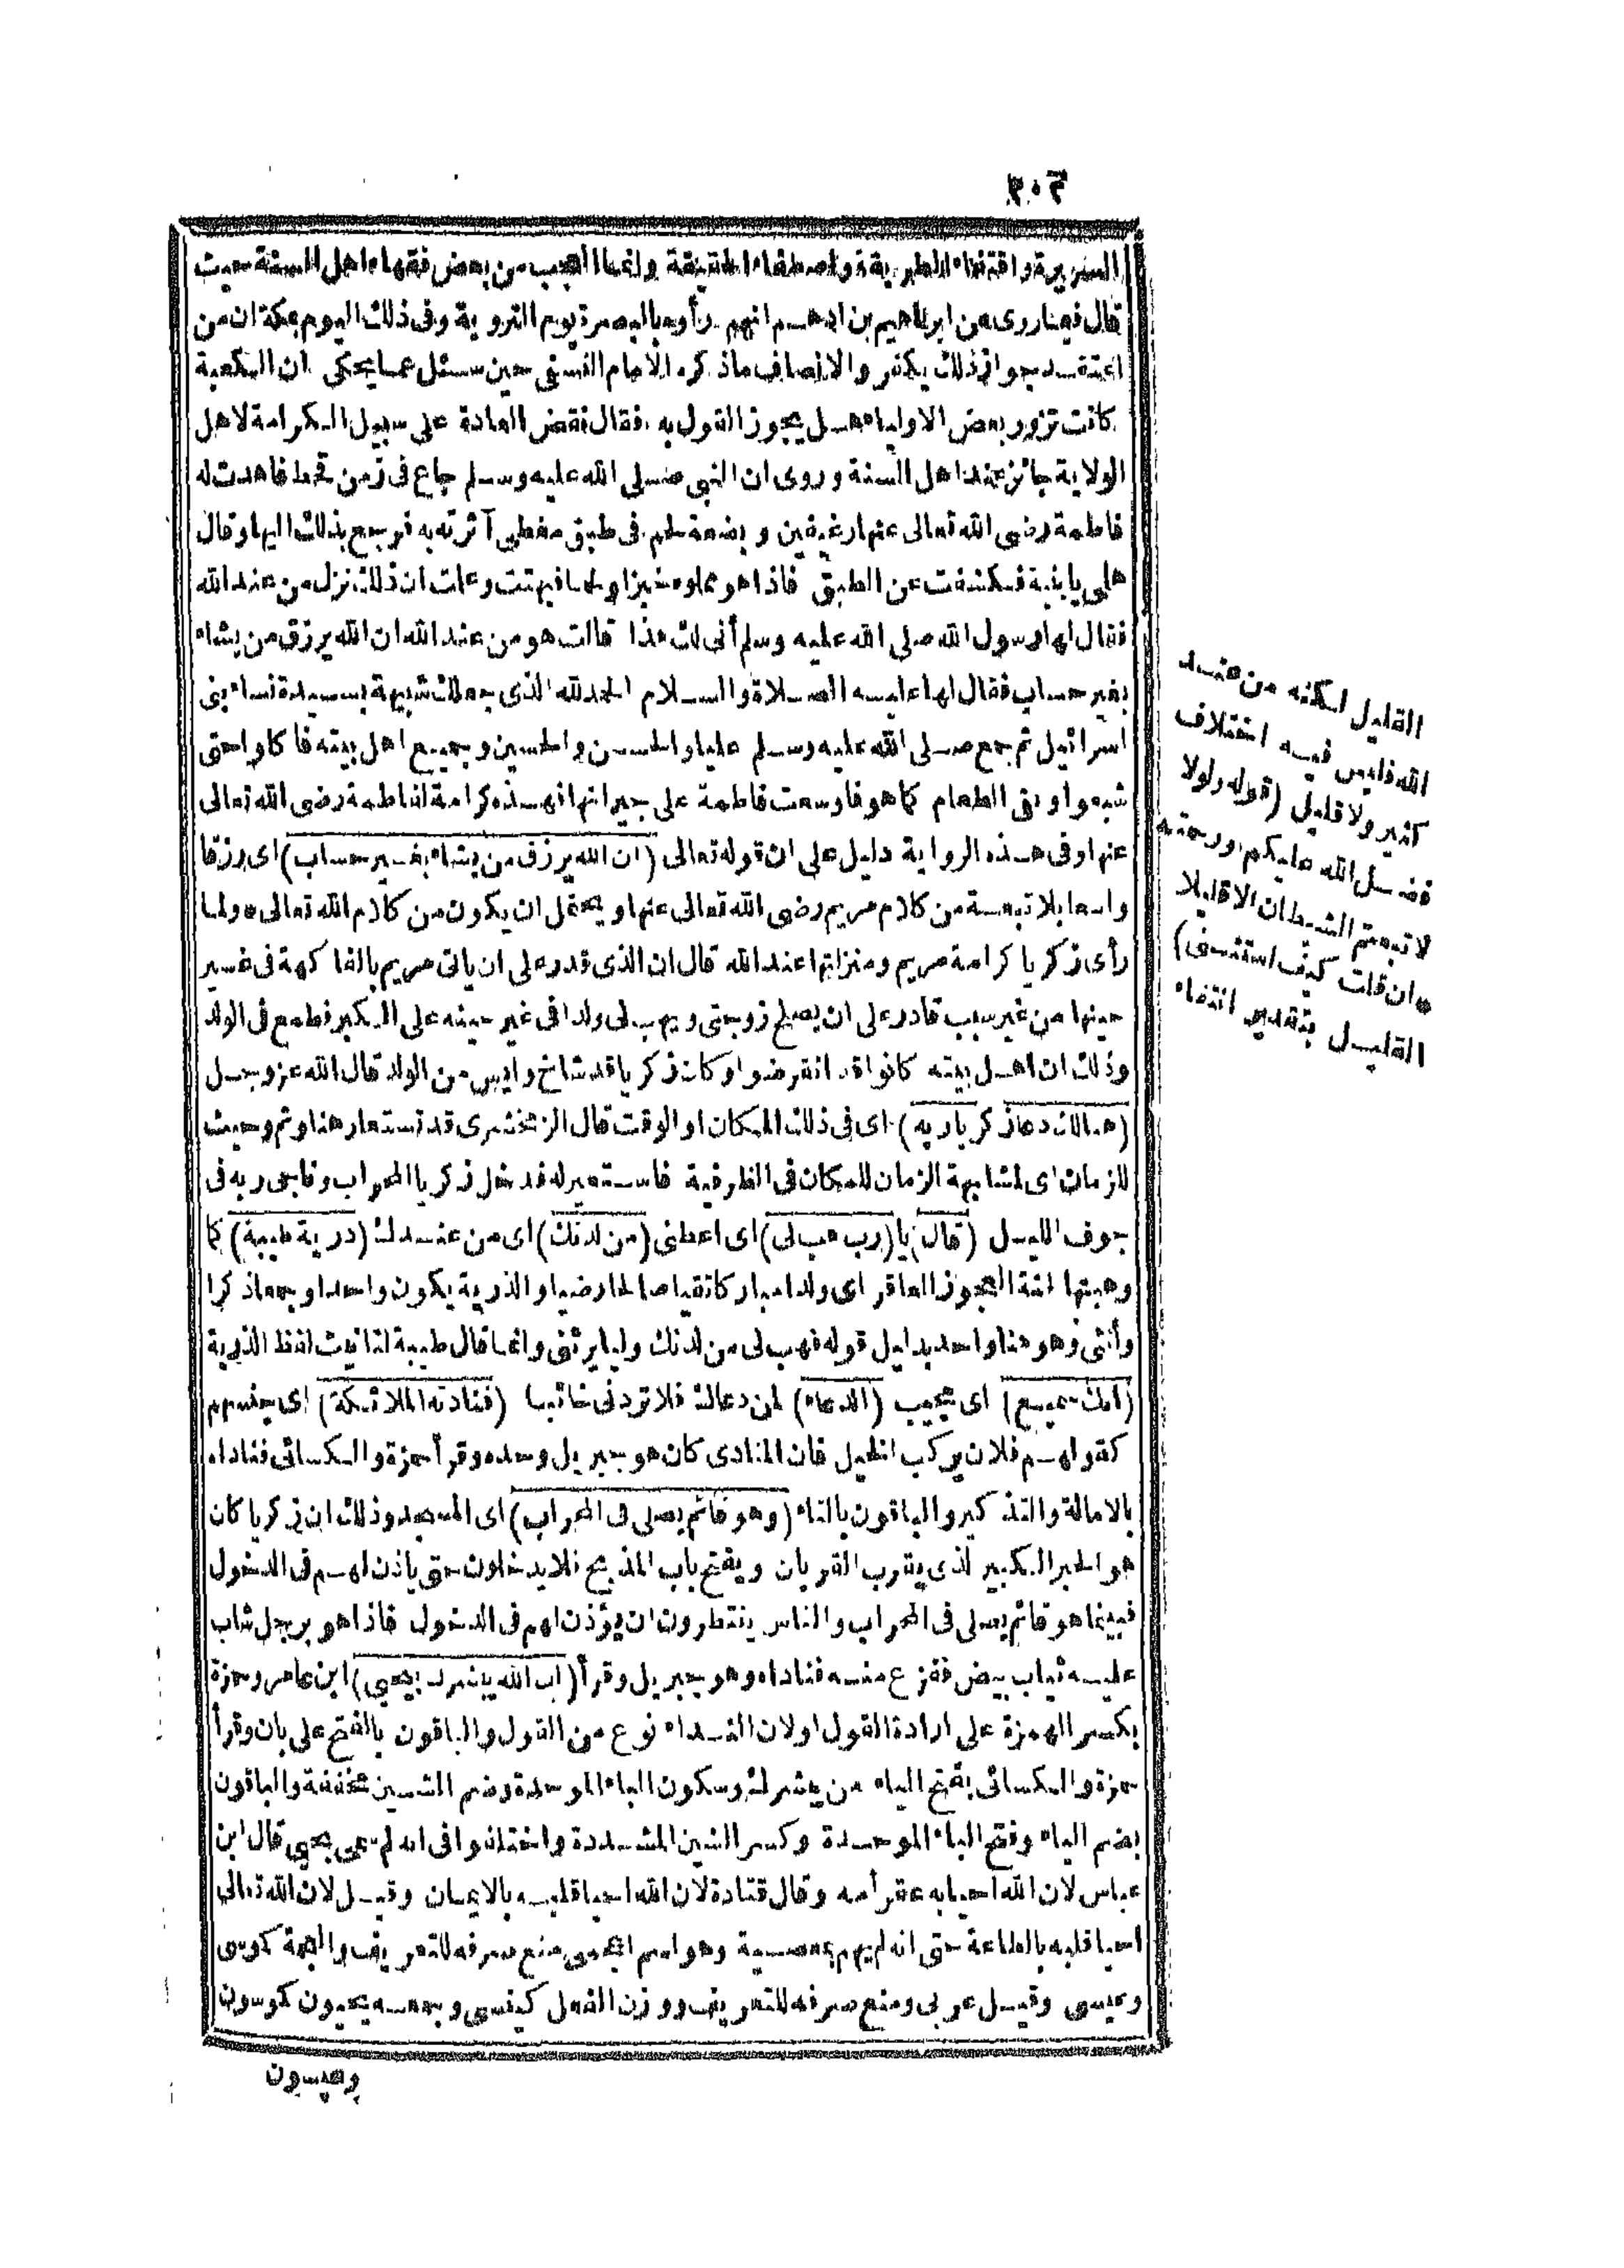 ٢٠٤
السريرة واقتفاء الطريقة واصطفاء الحقيقة وانما العجب من بعض فقهاء اهل السنة حيث
قال فيما روى عن ابراهيم بن ادهم انهم رأوه بالبصرة يوم التروية وفى ذلك اليوم بمكة ان من
اعتقد جواز ذلك يكفر والانصاف ماذكره الامام النسفى حين سئل عما يحكى ان الكعبة
كانت تزور بعض الاولياء هل يجوز القول به فقال نقض العادة على سبيل الكرامة لاهل
الولاية جائز عند اهل السنة وروى ان النبى صلى الله عليه وسلم جاع فى زمن قحط فاهدت له
فاطمة رضى الله تعالى عنها رغيفين وبضعة لحم فى طبق مغطى آثرته به فرجع بذلك اليها وقال
هلمى يا بنية فكشفت عن الطبق فاذا هو مملوء خبزا ولحما فبهتت وعلمت ان ذلك نزل من عند الله
فقال لها رسول الله صلى الله عليه وسلم أنى لك هذا قالت هو من عند الله ان الله يرزق من يشاء
بغير حساب فقال لها عليه الصلاة والسلام الحمد لله الذى جعلك شبيهة بسيدة نساء بنى
اسرائيل ثم جمع صلى الله عليه وسلم عليا والحسن والحسين وجميع اهل بيته فاكلوا حتى
شبعوا وبقى الطعام كما هو فاوسعت فاطمة على جيرانها فهذه كرامة لفاطمة رضى الله تعالى
عنها وفى هذه الرواية دليل على ان قوله تعالى (ان الله يرزق من يشاء بغير حساب) اى رزقا
واسعا بلا تبعة من كلام مريم رضى الله تعالى عنها ويحتمل ان يكون من كلام الله تعالى * ولما
رأى زكريا كرامة مريم ومنزلتها عند الله قال ان الذى قدر على ان يأتى مريم بالفاكهة فى غير
حينها من غير سبب قادر على ان يصلح زوجتى ويهب لى ولدا فى غير حينه على الكبر فطمع فى الولد
وذلك ان اهل بيته كانوا قد انقرضوا وكان زكريا قد شاخ وايس من الولد قال الله عز وجل
(هنالك دعا زكريا ربه) اى فى ذلك المكان او الوقت قال الزمخشرى قد تستعار هنا وثم وحيث
للزمان اى لمشابهة الزمان للمكان فى الظرفية فاستعير له فدخل زكريا المحراب وناجى ربه فى
جوف الليل (قال) يا (رب هب لى) اى اعطنى (من لدنك) اى من عندك (ذرية طيبة) كما
وهبتها لحنة العجوز العاقر اى ولدا مباركا تقيا صالحا رضيا والذرية يكون واحدا وجمعا ذكرا
وأنثى وهو هنا واحد بدليل قوله فهب لى من لدنك وليا يرثنى وانما قال طيبة لتأنيث لفظ الذرية
(انك سميع) اى مجيب (الدعاء) لمن دعاك فلا تردنى خائبا (فنادته الملائكة) اى جنسهم
كقولهم فلان يركب الخيل فان المنادى كان هو جبريل وحده وقرأ حمزة والكسائى فناداه
بالامالة والتذكير والباقون بالتاء (وهو قائم يصلى فى المحراب) اى المسجد وذلك ان زكريا كان
هو الحبر الكبير الذى يقرب القربان ويفتح باب المذبح فلا يدخلون حتى يأذن لهم فى الدخول
فبينما هو قائم يصلى فى المحراب والناس ينتظرون ان يؤذن لهم فى الدخول فاذا هو برجل شاب
عليه ثياب بيض ففزع منه فناداه وهو جبريل وقرأ (ان الله يبشرك بيحيى) ابن عامر وحمزة
بكسر الهمزة على ارادة القول او لان النداء نوع من القول والباقون بالفتح على بان وقرأ
حمزة والكسائى بفتح الياء من يبشرك وسكون الباء الموحدة وضم الشين مخففة والباقون
بضم الياء وفتح الباء الموحدة وكسر الشين المشددة واختلفوا فى انه لم سمى يحيى قال ابن
عباس لان الله احيا به عقر أمه وقال قتادة لان الله احيا قلبه بالايمان وقيل لان الله تعالى
احيا قلبه بالطاعة حتى انه لم يهم بمعصية وهو اسم اعجمى منع صرفه للتعريف والعجمة كموسى
وعيسى وقيل عربى ومنع صرفه للتعريف ووزن الفعل كيغسى وجمعه يحيون كموسون
وعيسون
القليل لكنه من عند
الله فليس فيه اختلاف
كثير ولا قليل (قوله ولولا
فضل الله عليكم ورحمته
لاتبعتم الشيطان الا قليلا
* ان قلت كيف استثنى)
القليل بتقدير انتفاء